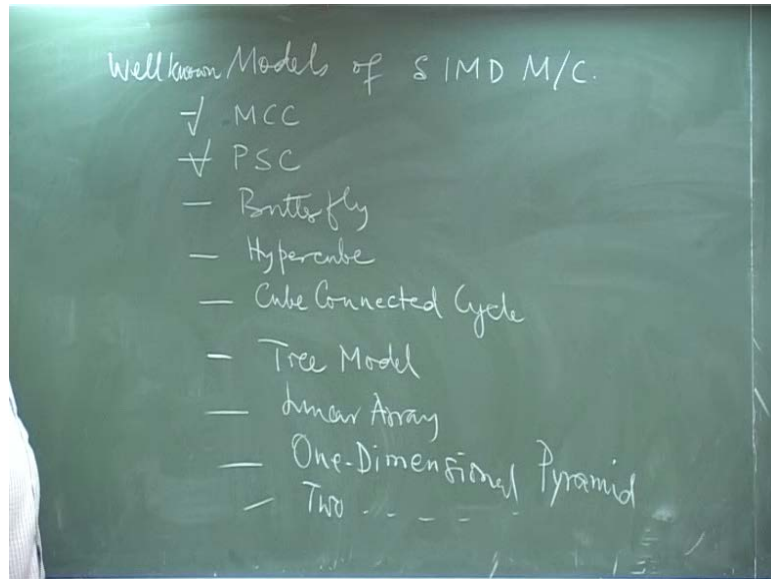 Wellknown Models of SIMD M/C.
- MCC
- PSC
- Butterfly
- Hypercube
- Cube Connected Cycle
- Tree Model
- Linear Array
- One-Dimensional Pyramid
- Two - - - -